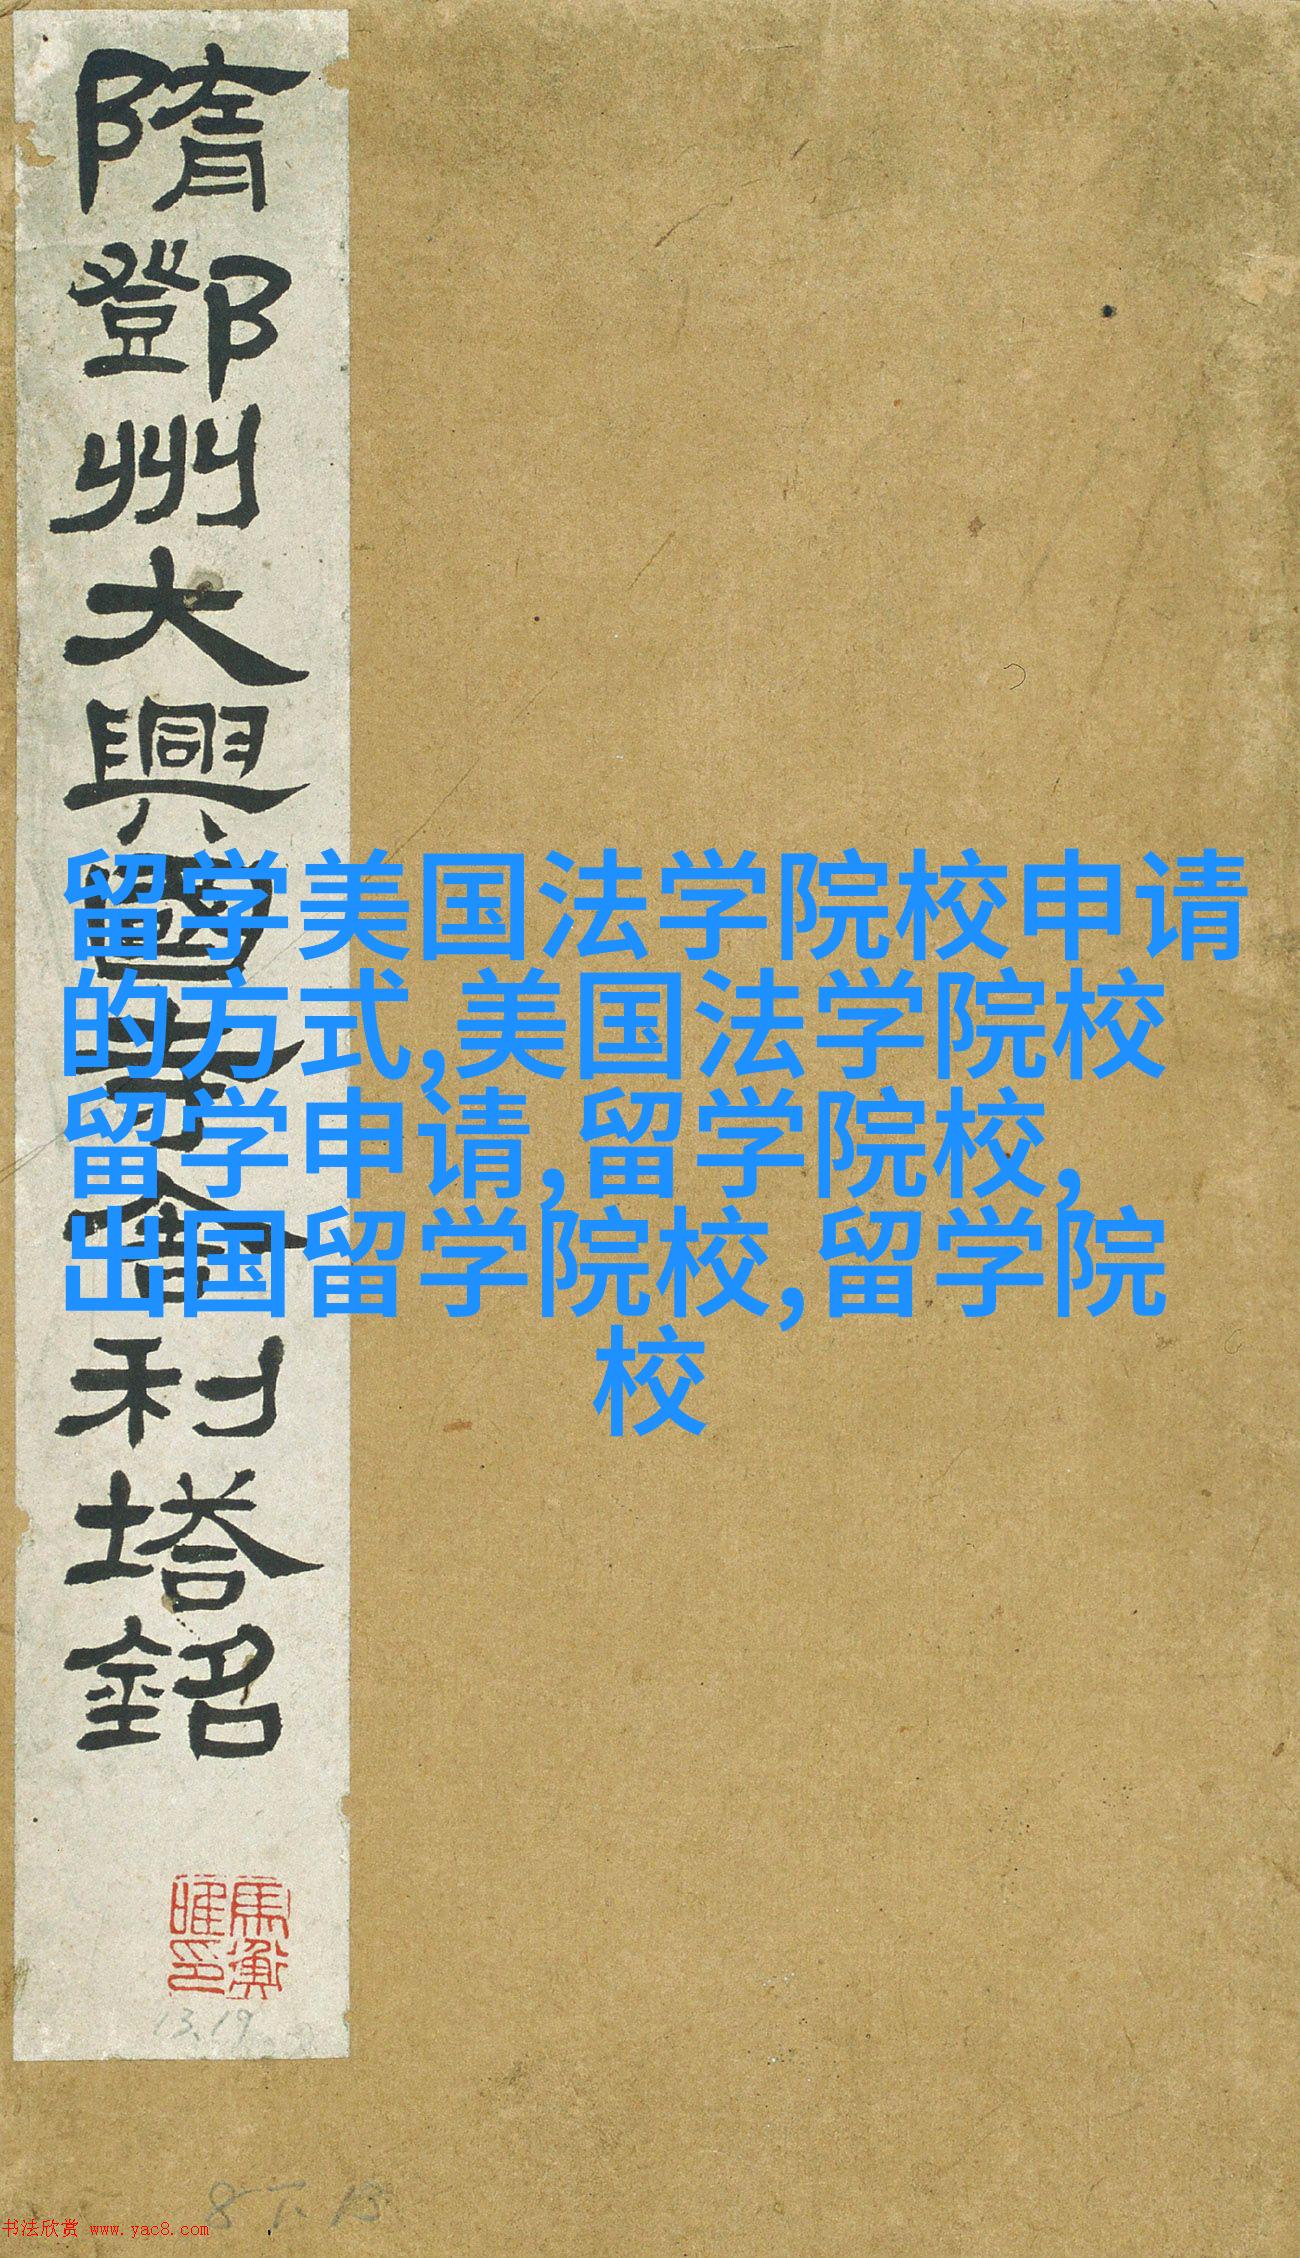 隋鄧州大興國寺舍利塔銘
留学美国法学院校申请
的方式,美国法学院校
留学申请,留学院校,
出国留学院校,留学院
校
馬衡
13.19
8下13
书法欣赏 www.yac8.com